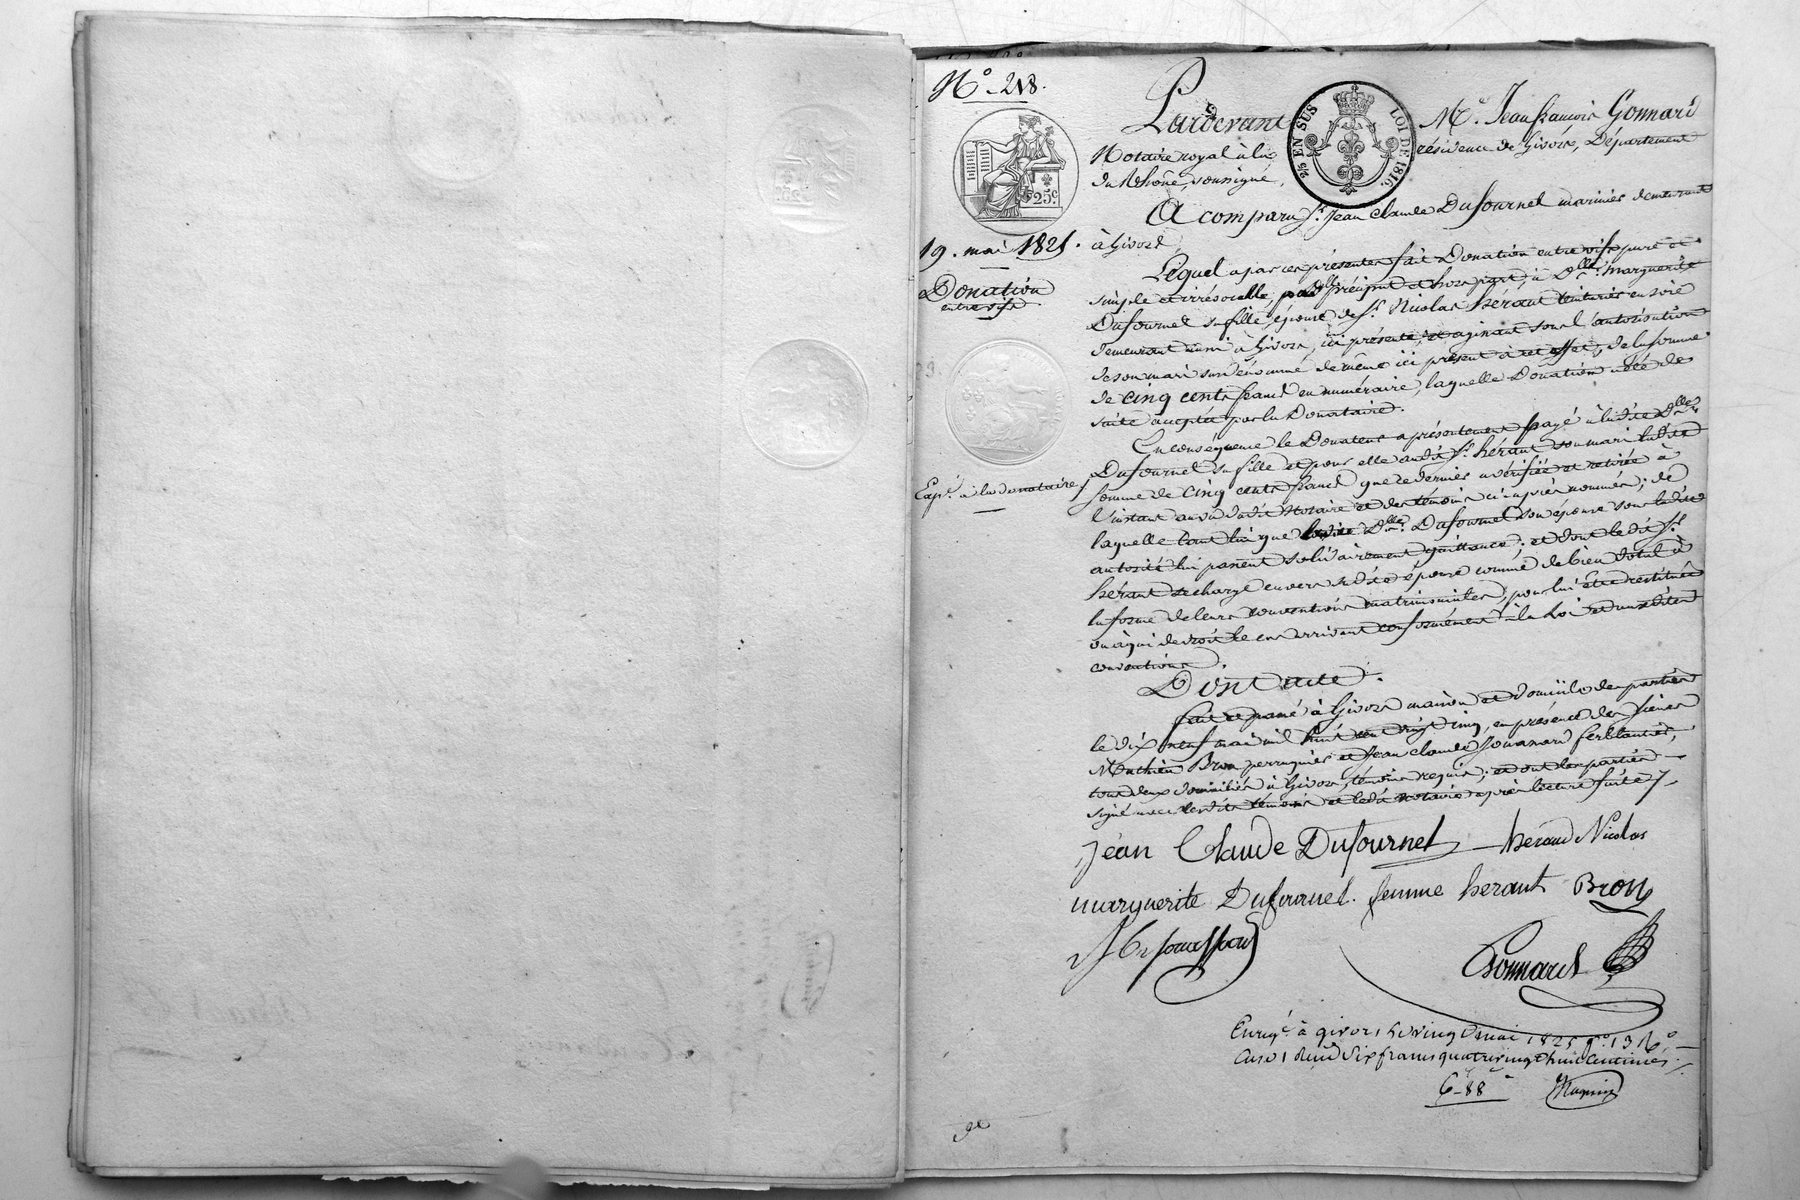 N.° 218.
Pardevant Mc. Jean françois Gonnard
2/5 EN SUS LOI DE 1816.
Notaire royal à la résidence de Givors, Département
du Rhône, soussigné,
25c
A comparu Sr. Jean Claude Dufournel marinier demeurant
19. mai 1825.
à Givors,
Donation
entre vifs
Lequel a par ces présentes fait Donation entre vifs pure et
simple et irrévocable, par préciput et hors part, à Dlle. marguerite
Dufournel sa fille, épouse de Sr. Nicolas héraut teinturier en soie
demeurant aussi à Givors, ici présente, et agissant sous l'autorisation
de son mari susdénommé de même ici présent à cet effet, de la somme
de cinq cents francs en numéraire, laquelle Donation a été de
suite acceptée par la Donataire.
En conséquence le Donateur a présentement payé à ladite Dlle.
Dufournel sa fille et pour elle audit Sr. héraut son mari ladite
Exp. à la donataire
somme de cinq cents francs que ce dernier a vérifiée et retirée à
l'instant au vu dudit Notaire et des témoins ci après nommés; de
laquelle tant lui que Dlle. Dufournel son épouse sous ladite
autorité lui passent solidairement quittance; et dont ledit Sr.
héraut se charge envers sadite épouse comme de bien dotal à
la forme de leurs conventions matrimoniales, pour lui être restituée
ou à qui de droit le cas arrivant conformément à la Loi et auxdites
conventions.
Dont acte.
fait et passé à Givors maison et domicile des parties
le dix neuf mai mil huit cent vingt cinq, en présence des sieurs
Mathieu Bron perruquier et Jean Claude Jouanard ferblantier,
tous deux domiciliés à Givors, témoins requis; et ont les parties
signé avec lesdits témoins et ledit notaire après lecture faite
jean Claude Dufournel heraud Nicolas
marguerite Dufournel. femme heraut Bron
Gonnard
Enregé à givors le vingt mai 1825 fo. 13 Ro
case 1 reçu six francs quatre vingt huit centimes
6-88